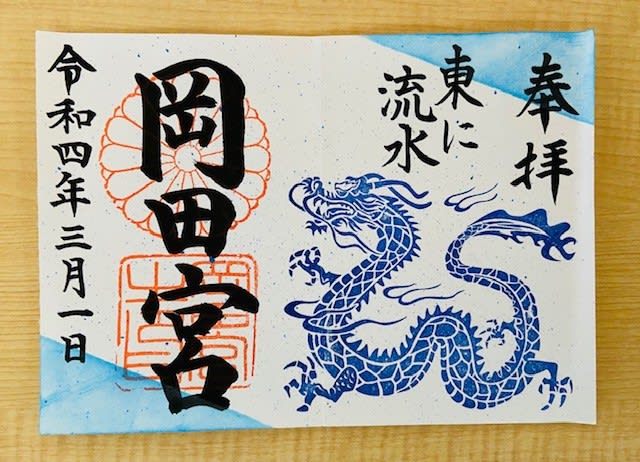 奉拝
東に
流水
岡田宮
令和四年三月一日